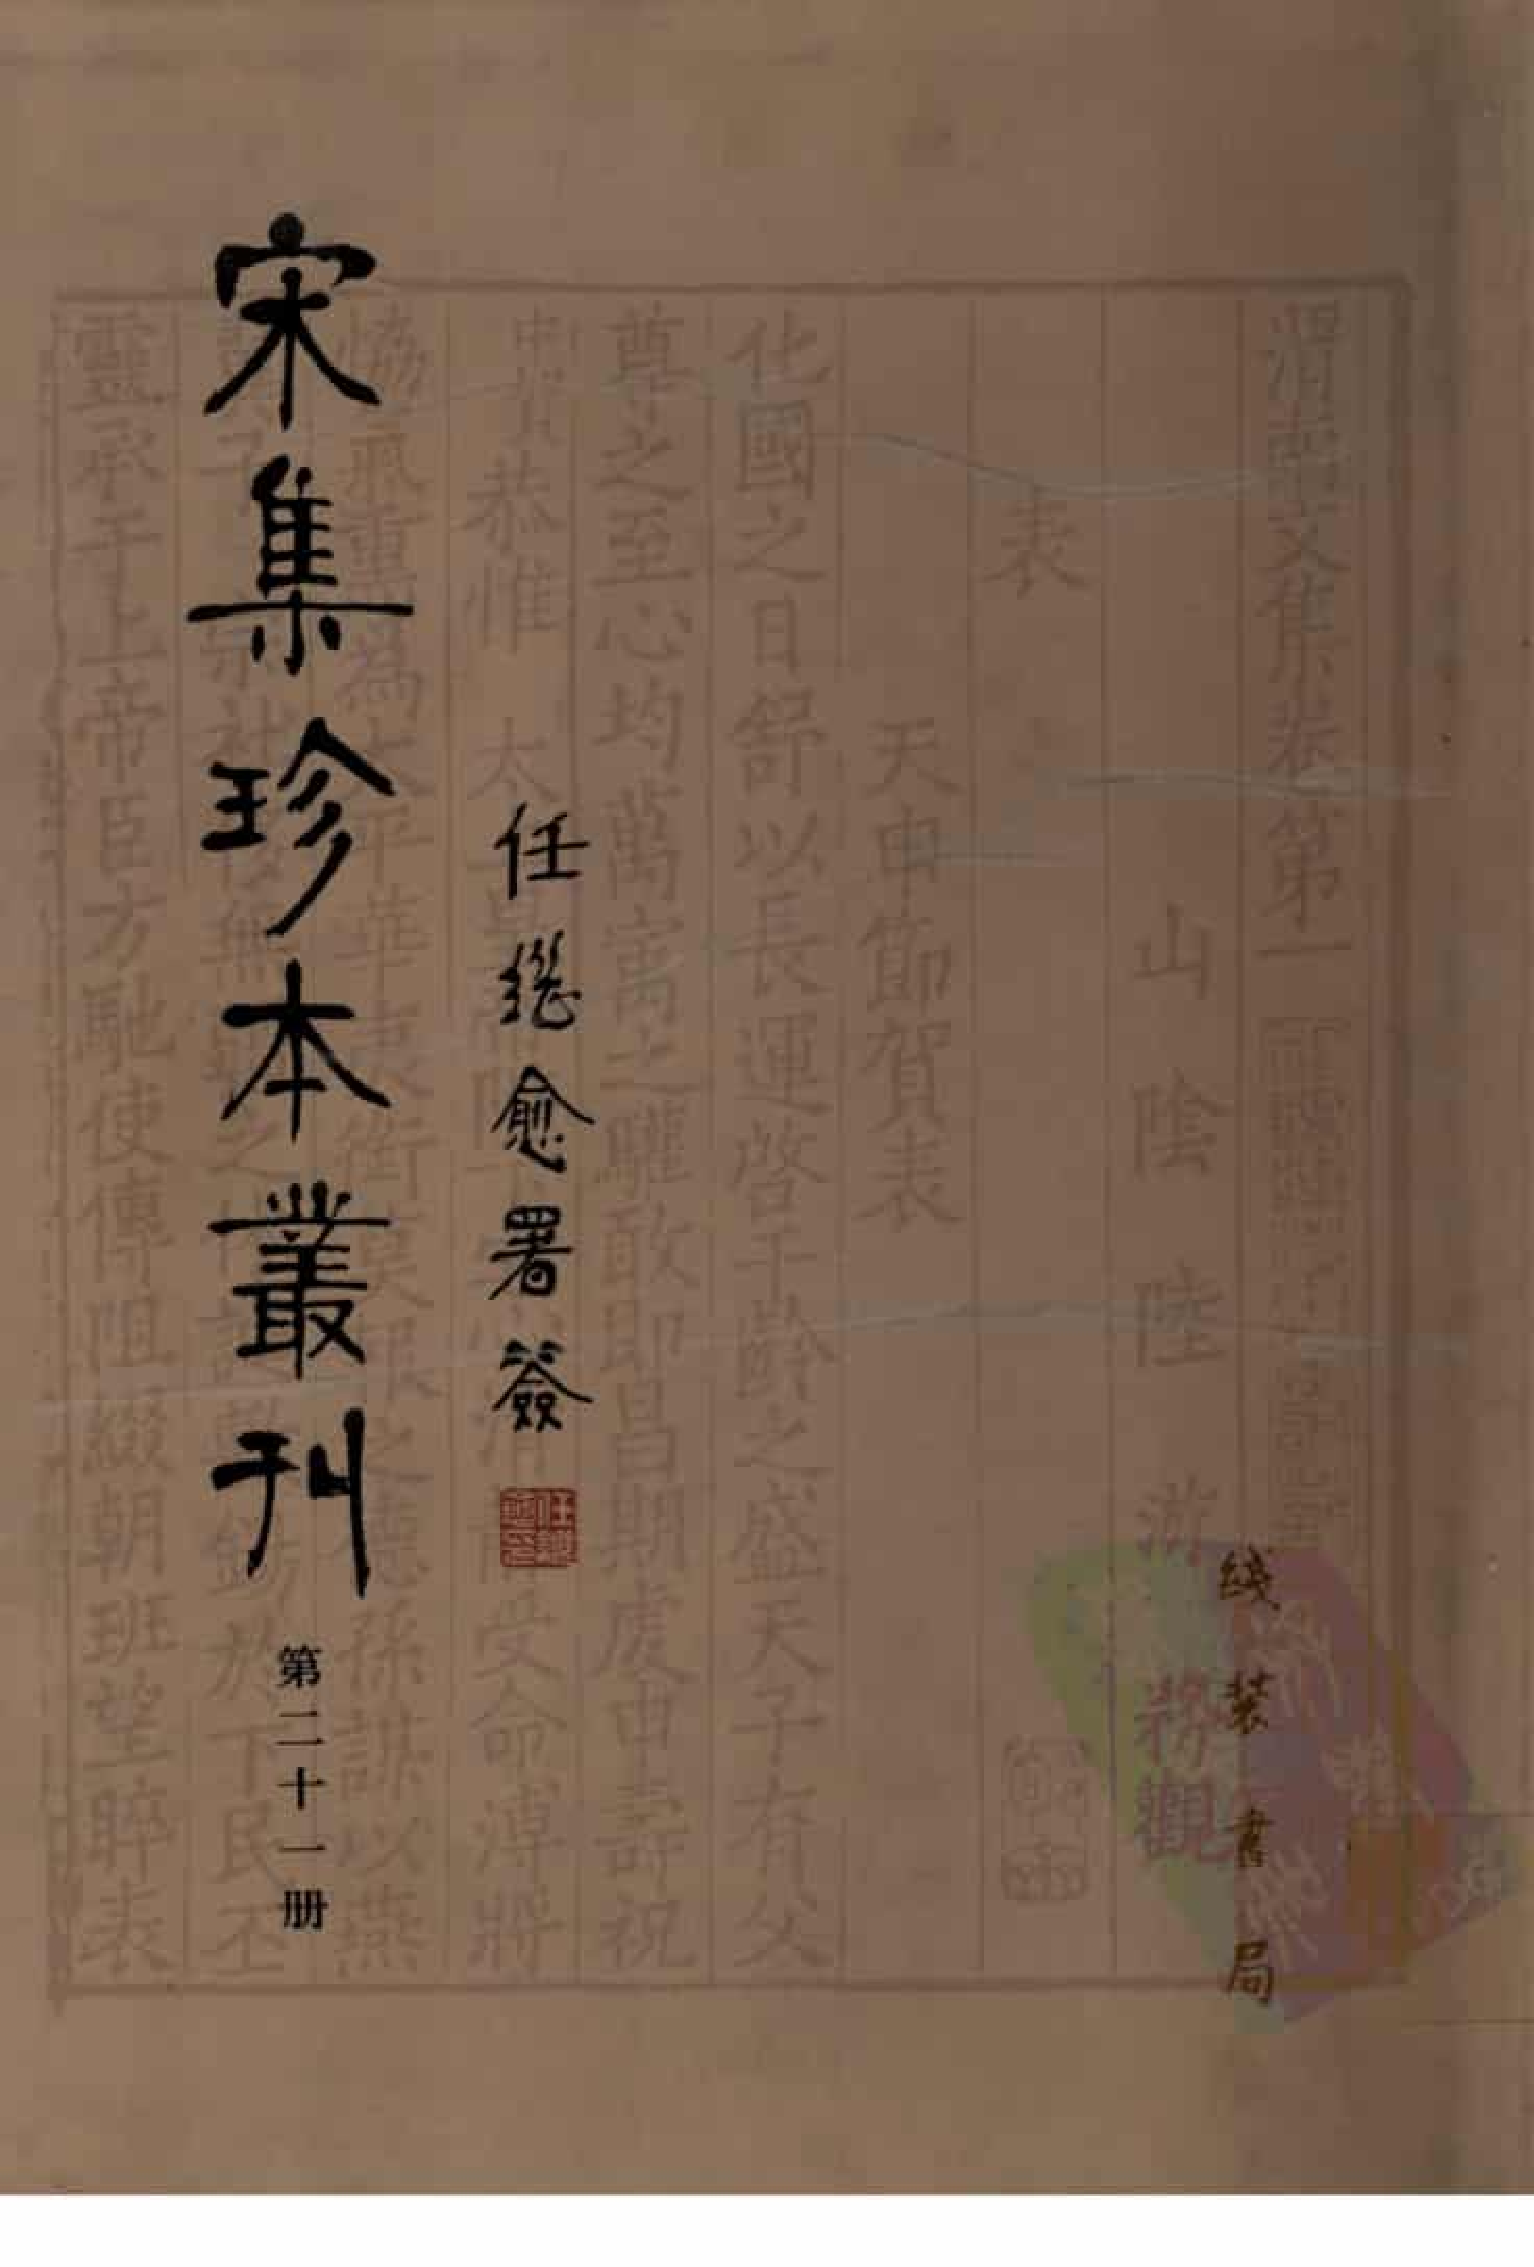 宋集珍本叢刊
第二十一册
任继愈署簽
线装書局
渭南文集卷第一
山陰陸游務觀
表
天申節賀表
化國之日舒以長運啓千齡之盛天子有父
尊之至心均萬寓之驩敢即昌期虔申壽祝
中賀恭惟 太
受命溥將
協
孫謀以燕
於下民丕
靈承于上帝臣方馳使傳阻綴朝班望睟表